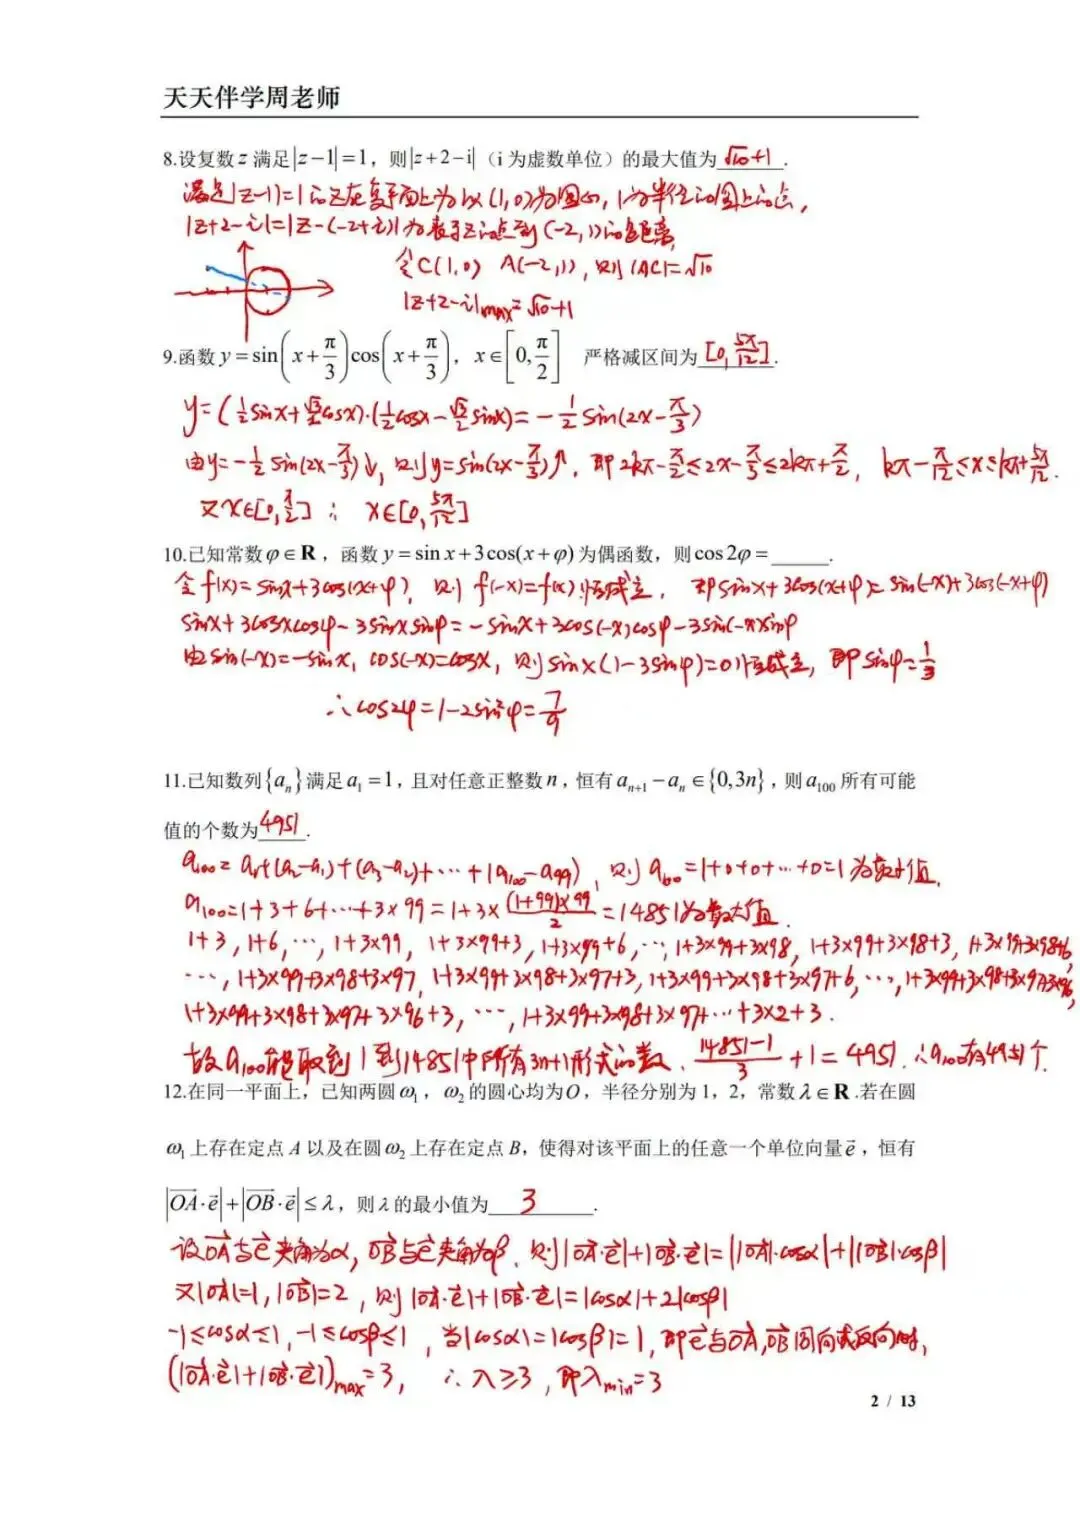 天天伴学周老师
8.设复数 z 满足|z−1|=1，则|z+2−i|（i 为虚数单位）的最大值为 √10+1 .
满足|z-1|=1的z在复平面上为以(1,0)为圆心,1为半径的圆上的点,
|z+2-i|=|z-(-2+i)|为表示z的点到(-2,1)的距离
令C(1,0) A(-2,1), 则|AC|=√10
|z+2-i|max=√10+1
9.函数 y=sin(x+π/3)cos(x+π/3)，x∈[0,π/2] 严格减区间为 [0,5π/12] .
y=(1/2sinx+√3/2cosx)·(1/2cosx-√3/2sinx)=-1/2sin(2x-π/3)
由y=-1/2sin(2x-π/3)↓, 则y=sin(2x-π/3)↑, 即2kπ-π/2≤2x-π/3≤2kπ+π/2, kπ-π/12≤x≤kπ+5π/12.
又x∈[0,π/2] ∴ x∈[0,5π/12]
10.已知常数φ∈R，函数 y=sin x+3cos(x+φ)为偶函数，则cos2φ=______.
令f(x)=sinx+3cos(x+φ), 则f(-x)=f(x)恒成立, 即sinx+3cos(x+φ)=sin(-x)+3cos(-x+φ)
sinx+3cosxcosφ-3sinxsinφ=-sinx+3cos(-x)cosφ-3sin(-x)sinφ
由sin(-x)=-sinx, cos(-x)=cosx, 则sinx(1-3sinφ)=0恒成立, 即sinφ=1/3
∴cos2φ=1-2sin²φ=7/9
11.已知数列{aₙ}满足a₁=1，且对任意正整数n，恒有aₙ₊₁−aₙ∈{0,3n}，则a₁₀₀所有可能
值的个数为 4951 .
a₁₀₀=a₁+(a₂-a₁)+(a₃-a₂)+⋯+(a₁₀₀-a₉₉), 则a₁₀₀=1+0+0+⋯+0=1为最小值,
a₁₀₀=1+3+6+⋯+3×99=1+3×(1+99)×99/2=14851为最大值.
1+3, 1+6, ⋯, 1+3×99, 1+3×99+3, 1+3×99+6, ⋯, 1+3×99+3×98, 1+3×99+3×98+3, 1+3×99+3×98+6,
⋯, 1+3×99+3×98+3×97, 1+3×99+3×98+3×97+3, 1+3×99+3×98+3×97+6, ⋯, 1+3×99+3×98+3×97+3×96,
1+3×99+3×98+3×97+3×96+3, ⋯, 1+3×99+3×98+3×97+⋯+3×2+3.
故a₁₀₀能取到1到14851中所有3n+1形式的数. (14851-1)/3+1=4951. ∴a₁₀₀有4951个.
12.在同一平面上，已知两圆ω₁，ω₂的圆心均为O，半径分别为 1，2，常数λ∈R.若在圆
ω₁上存在定点 A 以及在圆ω₂上存在定点 B，使得对该平面上的任意一个单位向量e⃗，恒有
|OA⃗·e⃗|+|OB⃗·e⃗|≤λ，则λ的最小值为 3 .
设OA⃗与e⃗夹角为α, OB⃗与e⃗夹角为β, 则|OA⃗·e⃗|+|OB⃗·e⃗|=||OA⃗|·cosα|+||OB⃗|·cosβ|
又|OA⃗|=1, |OB⃗|=2, 则|OA⃗·e⃗|+|OB⃗·e⃗|=|cosα|+2|cosβ|
-1≤cosα≤1, -1≤cosβ≤1, 当|cosα|=|cosβ|=1, 即e⃗与OA⃗,OB⃗同向或反向时,
(|OA⃗·e⃗|+|OB⃗·e⃗|)max=3, ∴λ≥3, 即λmin=3
2 / 13